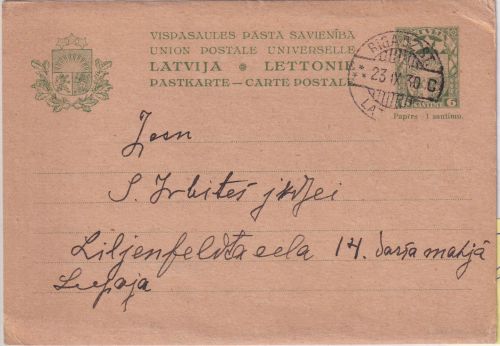 VISPASAULES PASTA SAVIENĪBA
UNION POSTALE UNIVERSELLE
LATVIJA ✻ LETTONIE
PASTKARTE – CARTE POSTALE
LATVIJA
RIGA
23 IX 30 C
LA
6
Papīrs 1 santīms.
S. Irbites jkdzei
Liljenfeldta eela 14. darza mahjā
Leepaja